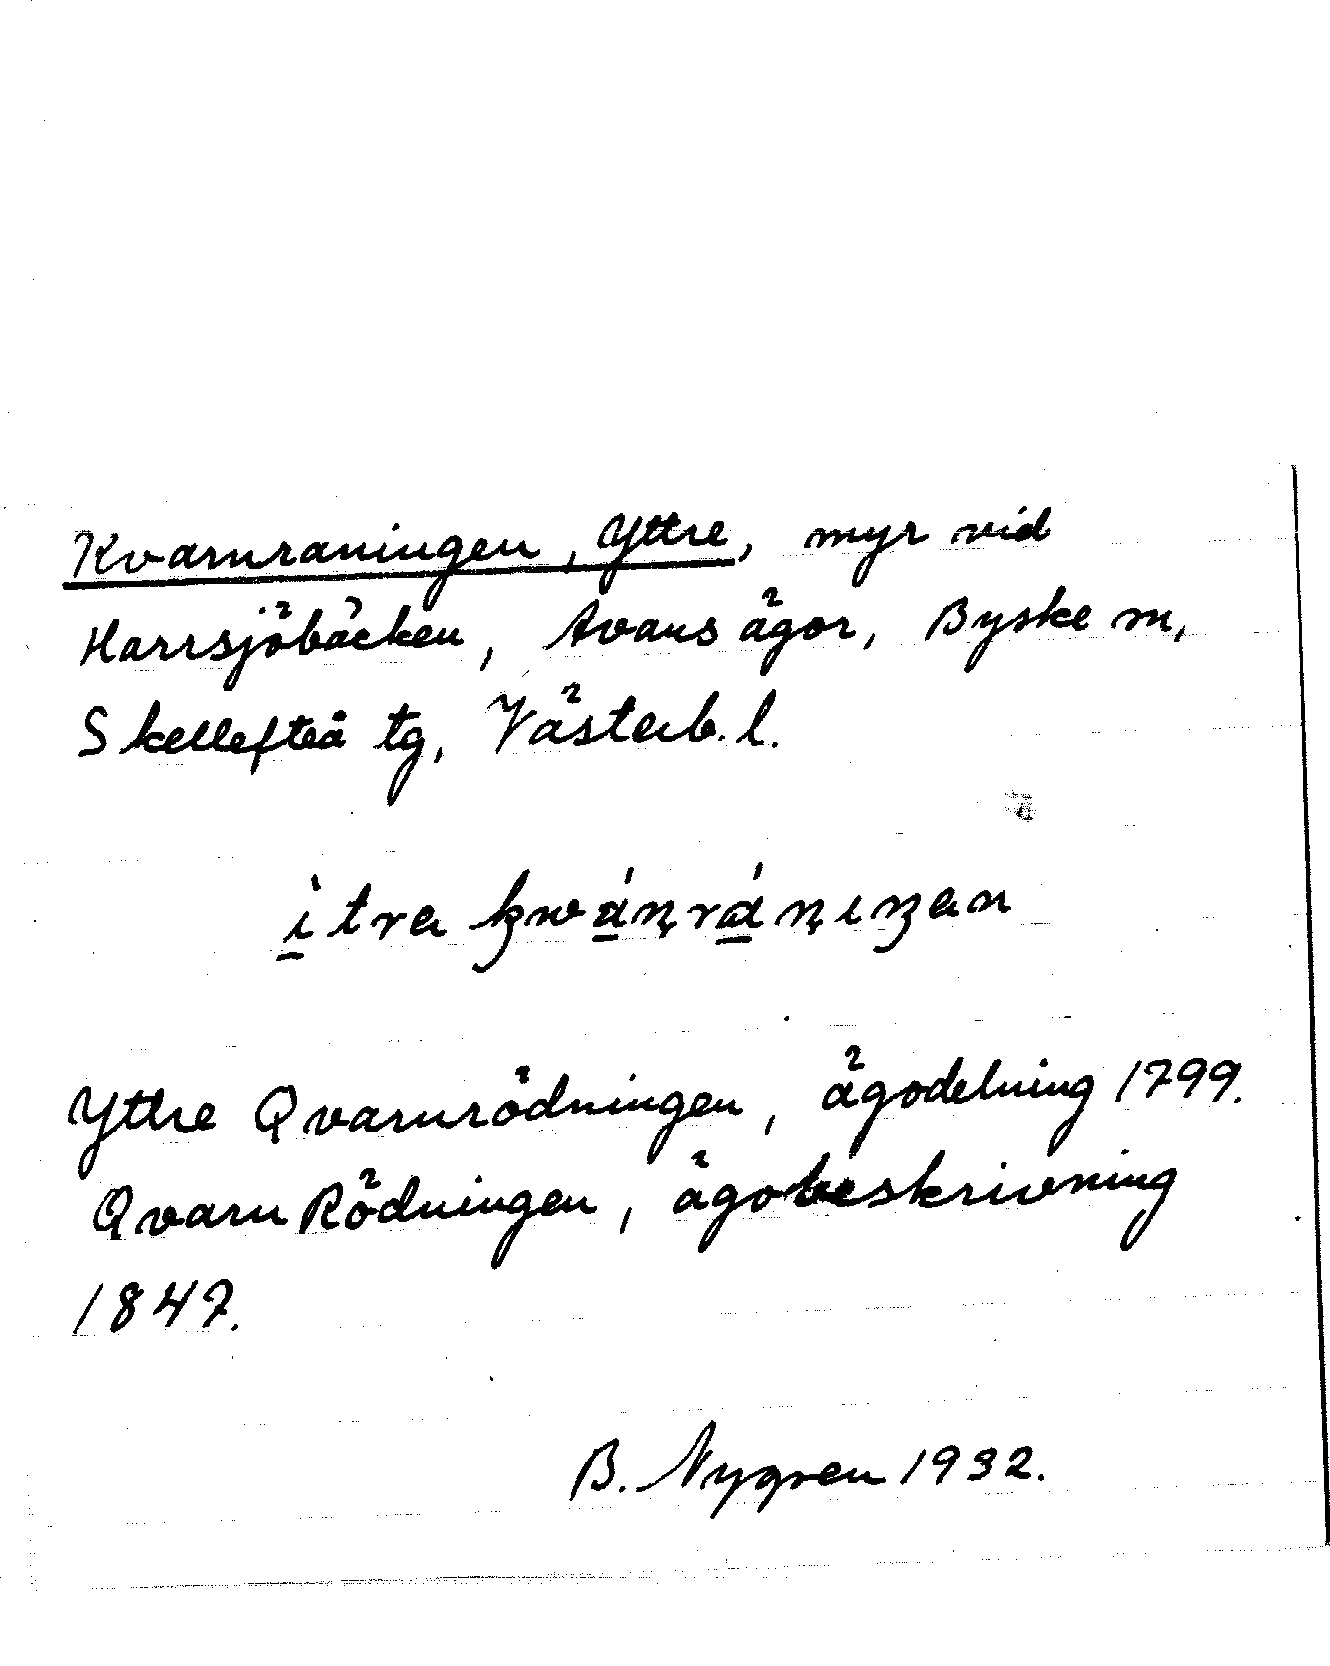 Kvarnraningen, Yttre, myr vid
Harrsjöbäcken, Avans ägor, Byske sn,
Skellefteå tg, Västerb. l.
ìtra kwáṇráṇıŋan
Yttre Qvarnrödningen, ägodelning 1799.
QvarnRödningen, ägobeskrivning
1847.
B. Nygren 1932.